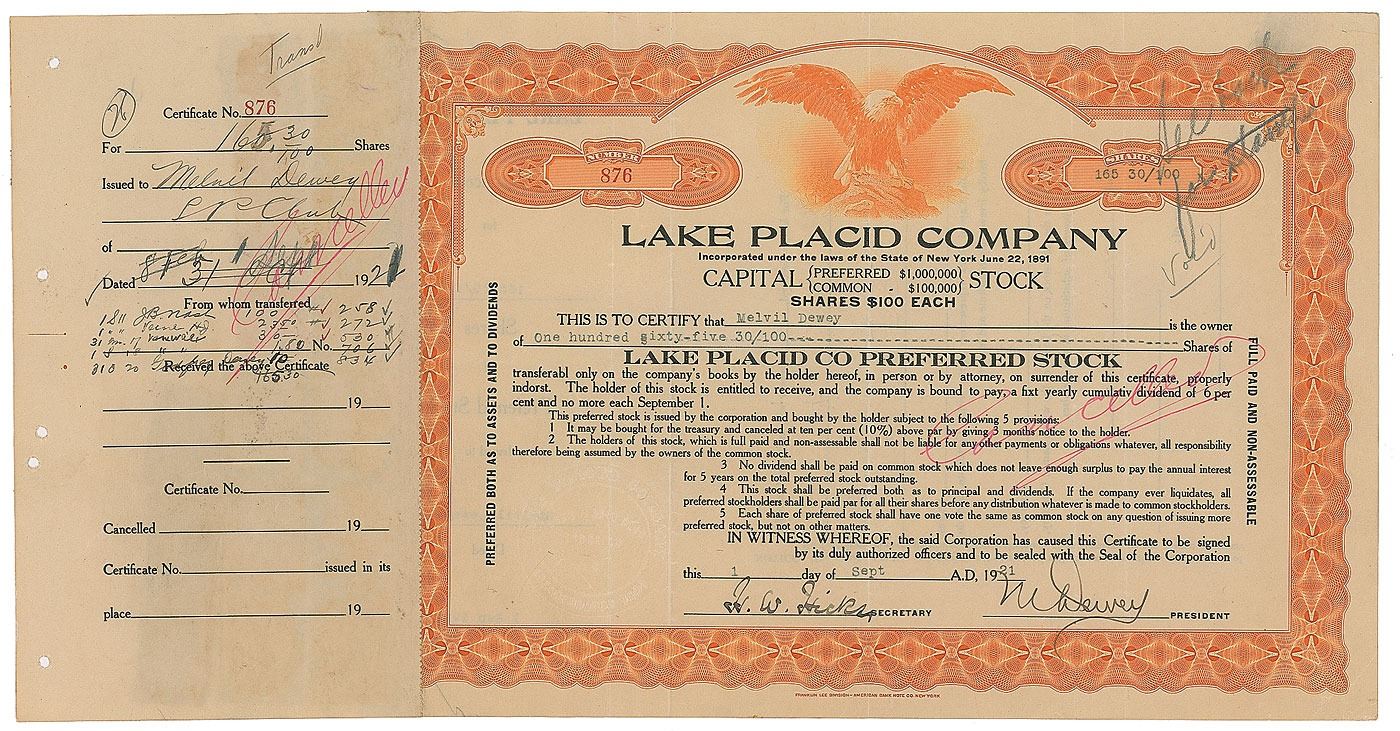 Transf
Certificate No. 876
For 165 30/100 Shares
Issued to Melvil Dewey
L P Club
of
Dated 31 1921
From whom transferred
100 258
2350 272
30 530
No.
10 834
Received the above Certificate
165 30
19
Certificate No.
Cancelled 19
Certificate No. issued in its
place 19
Cancelled
NUMBER
876
SHARES
165 30/100
Void
LAKE PLACID COMPANY
Incorporated under the laws of the State of New York June 22, 1891
CAPITAL {PREFERRED $1,000,000} STOCK
{COMMON - $100,000}
SHARES $100 EACH
THIS IS TO CERTIFY that Melvil Dewey is the owner
of One hundred sixty-five 30/100--- Shares of
LAKE PLACID CO PREFERRED STOCK
transferabl only on the company's books by the holder hereof, in person or by attorney, on surrender of this certificate, properly
indorst. The holder of this stock is entitled to receive, and the company is bound to pay, a fixt yearly cumulativ dividend of 6 per
cent and no more each September 1.
This preferred stock is issued by the corporation and bought by the holder subject to the following 5 provisions:
1 It may be bought for the treasury and canceled at ten per cent (10%) above par by giving 3 months notice to the holder.
2 The holders of this stock, which is full paid and non-assessable shall not be liable for any other payments or obligations whatever, all responsibility
therefore being assumed by the owners of the common stock.
3 No dividend shall be paid on common stock which does not leave enough surplus to pay the annual interest
for 5 years on the total preferred stock outstanding.
4 This stock shall be preferred both as to principal and dividends. If the company ever liquidates, all
preferred stockholders shall be paid par for all their shares before any distribution whatever is made to common stockholders.
5 Each share of preferred stock shall have one vote the same as common stock on any question of issuing more
preferred stock, but not on other matters.
IN WITNESS WHEREOF, the said Corporation has caused this Certificate to be signed
by its duly authorized officers and to be sealed with the Seal of the Corporation
this 1 day of Sept A.D, 1921
H. W. Hicks, SECRETARY M Dewey PRESIDENT
PREFERRED BOTH AS TO ASSETS AND TO DIVIDENDS
FULL PAID AND NON-ASSESSABLE
Cancelled
FRANKLIN LEE DIVISION-AMERICAN BANK NOTE CO. NEW YORK